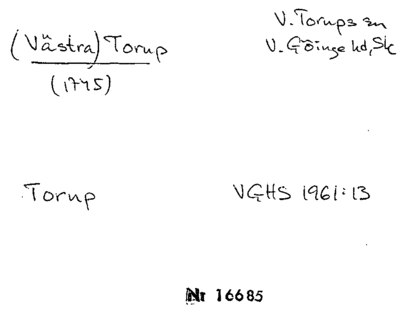 V. Torups sn
(Västra) Torup
V. Göinge hd, Sk
(1745)
Torup
VGHS 1961:13
Nr 16685